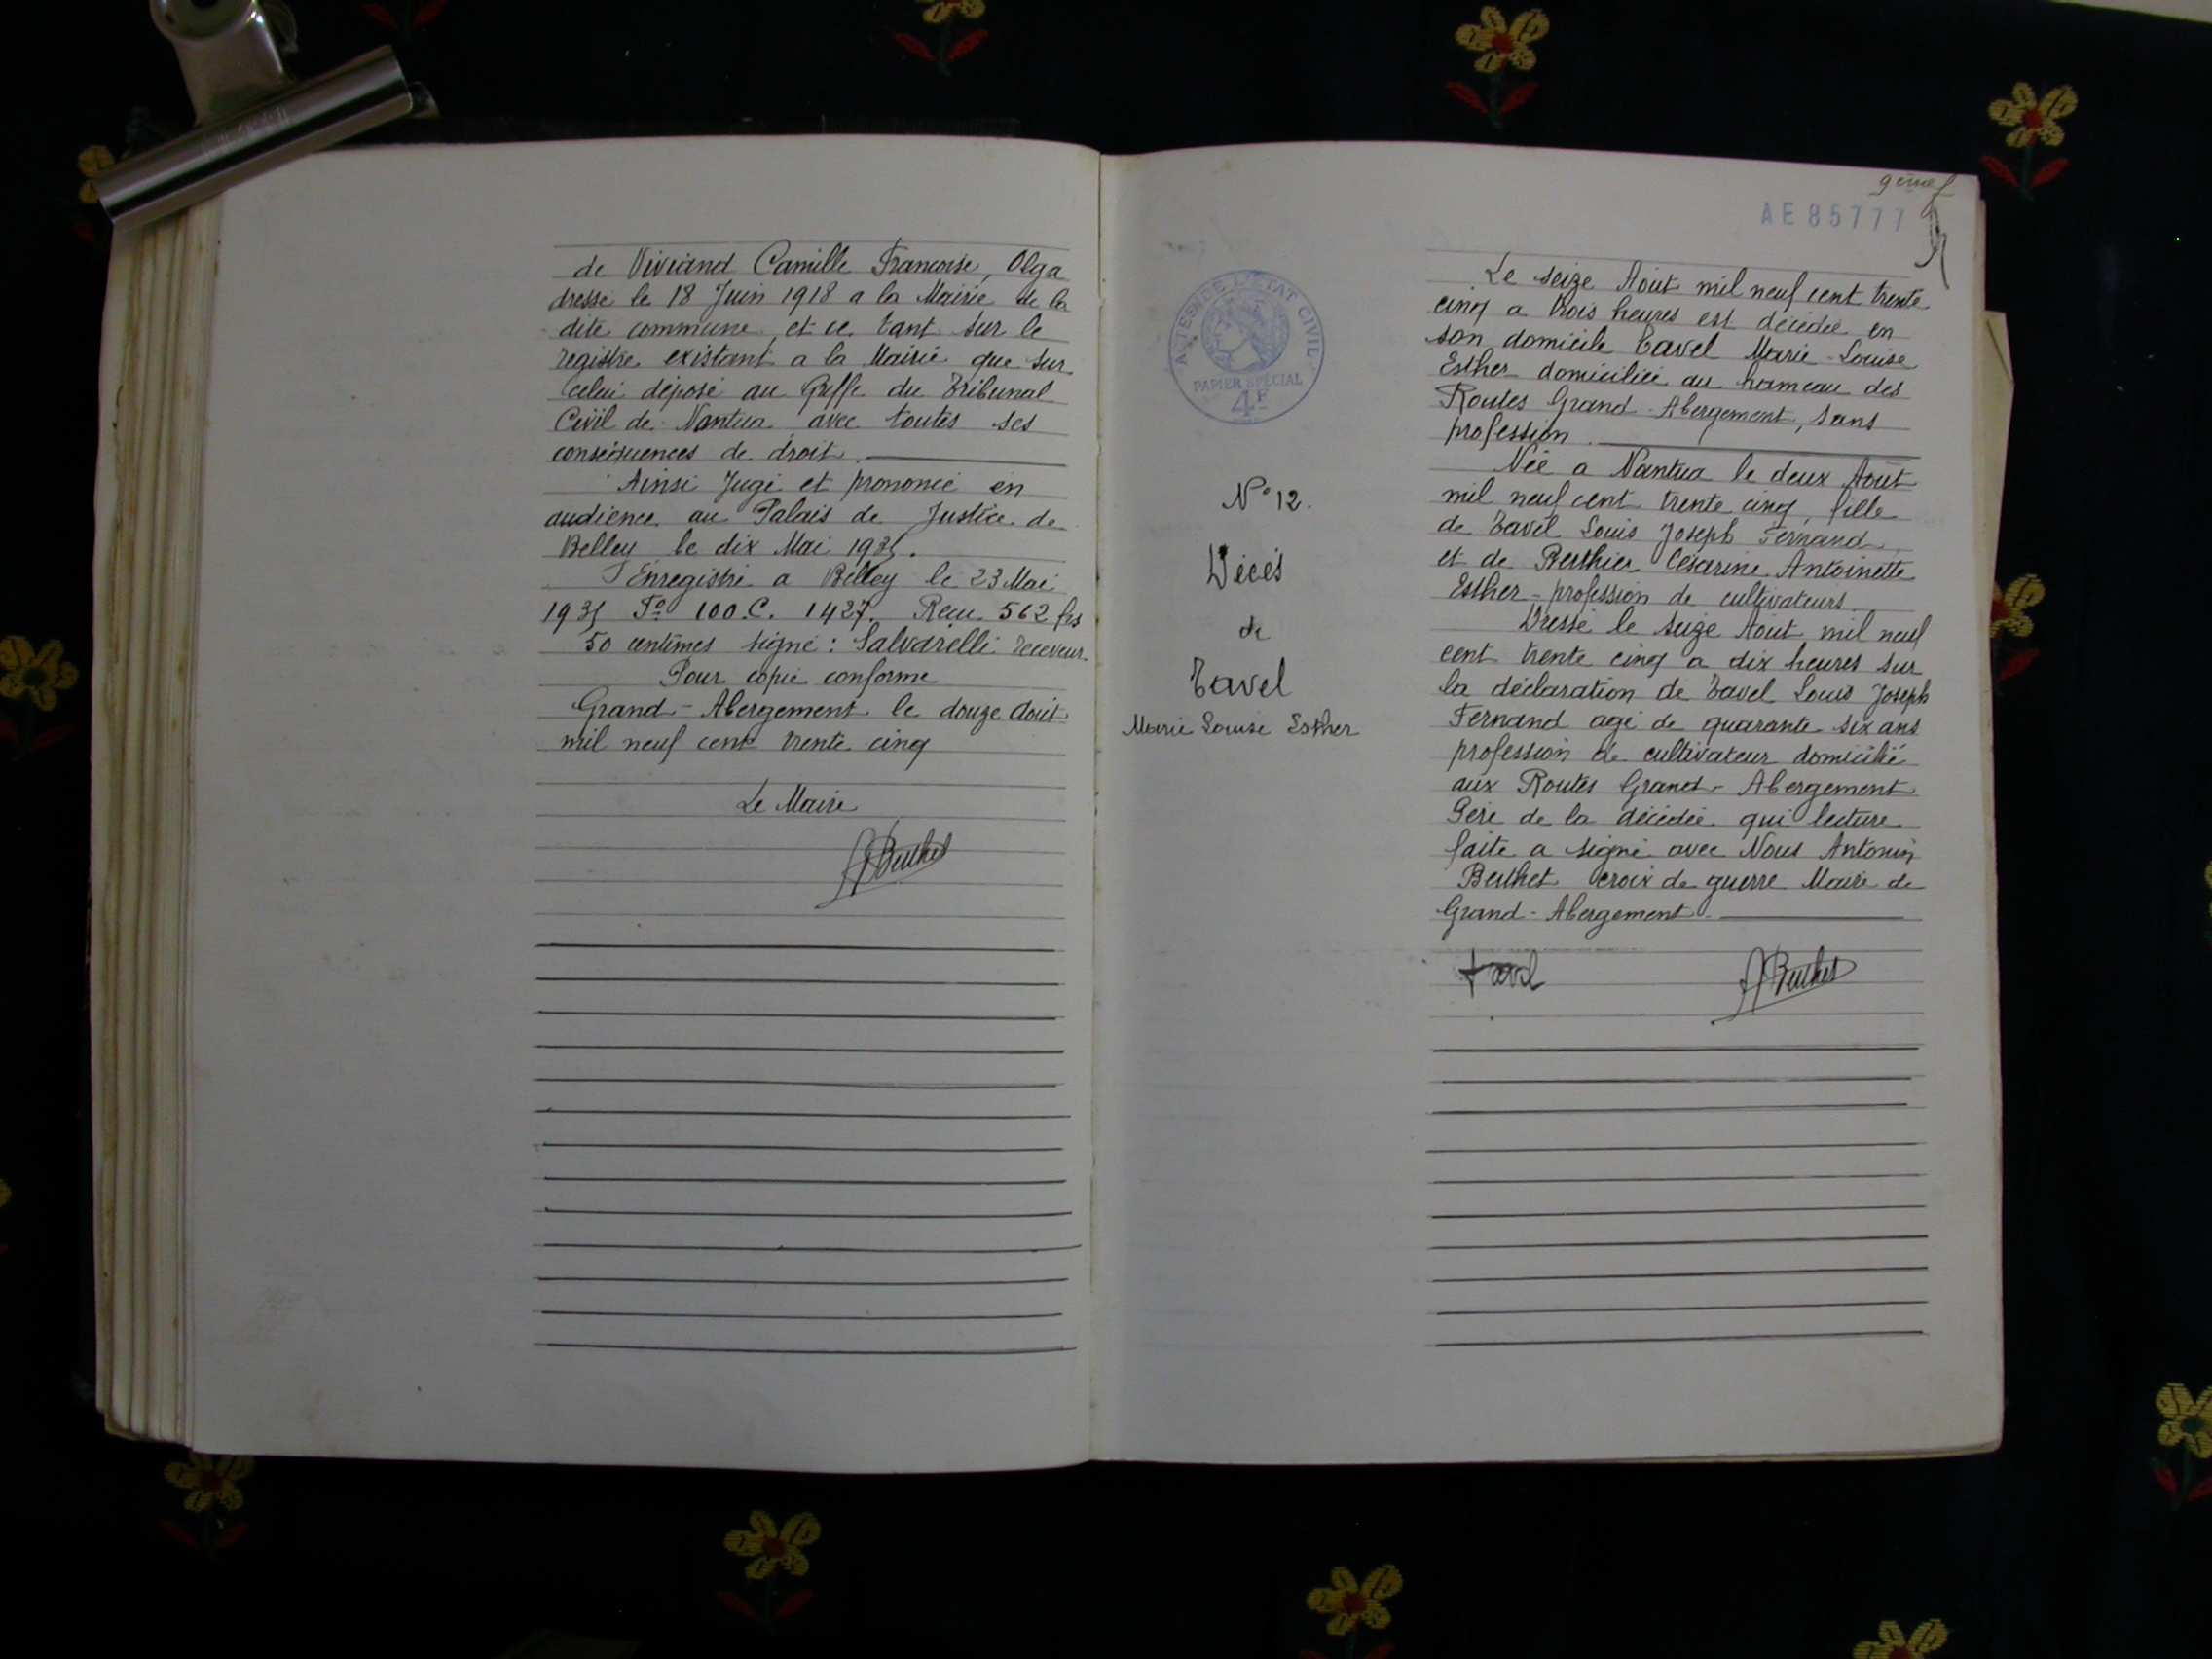 de Viviand Camille Francoise, Olga
dressé le 18 Juin 1918 a la Mairie de la
dite commune, et ce tant sur le
registre existant a la Mairie que sur
celui déposé au Greffe du Tribunal
Civil de Nantua avec toutes ses
conséquences de droit.
Ainsi Jugé et prononcé en
audience au Palais de Justice de
Belley le dix Mai 1935.
Enregistré a Belley le 23 Mai
1935 Fo 100 C. 1427. Recu 562 frs
50 centimes signé : Salvarelli receveur
Pour copie conforme
Grand-Abergement le douze Aout
mil neuf cent trente cinq
Le Maire
ABerthet
AE 85777
ACTES DE L'ETAT CIVIL
PAPIER SPECIAL
4F
N° 12.
Décés
de
Tavel
Marie Louise Esther
Le seize Aout mil neuf cent trente
cinq a trois heures est décédée en
son domicile Tavel Marie-Louise
Esther domiciliée au hameau des
Routes Grand-Abergement, sans
profession.
Née a Nantua le deux Aout
mil neuf cent trente cinq, fille
de Tavel Louis Joseph Fernand
et de Berthier Césarine Antoinette
Esther - profession de cultivateurs
Dressé le seize Aout mil neuf
cent trente cinq a dix heures sur
la déclaration de Tavel Louis Joseph
Fernand agé de quarante six ans
profession de cultivateur domicilié
aux Routes Grand-Abergement
Père de la décédée qui lecture
faite a signé avec Nous Antonin
Berthet croix de guerre Maire de
Grand-Abergement
Tavel
ABerthet